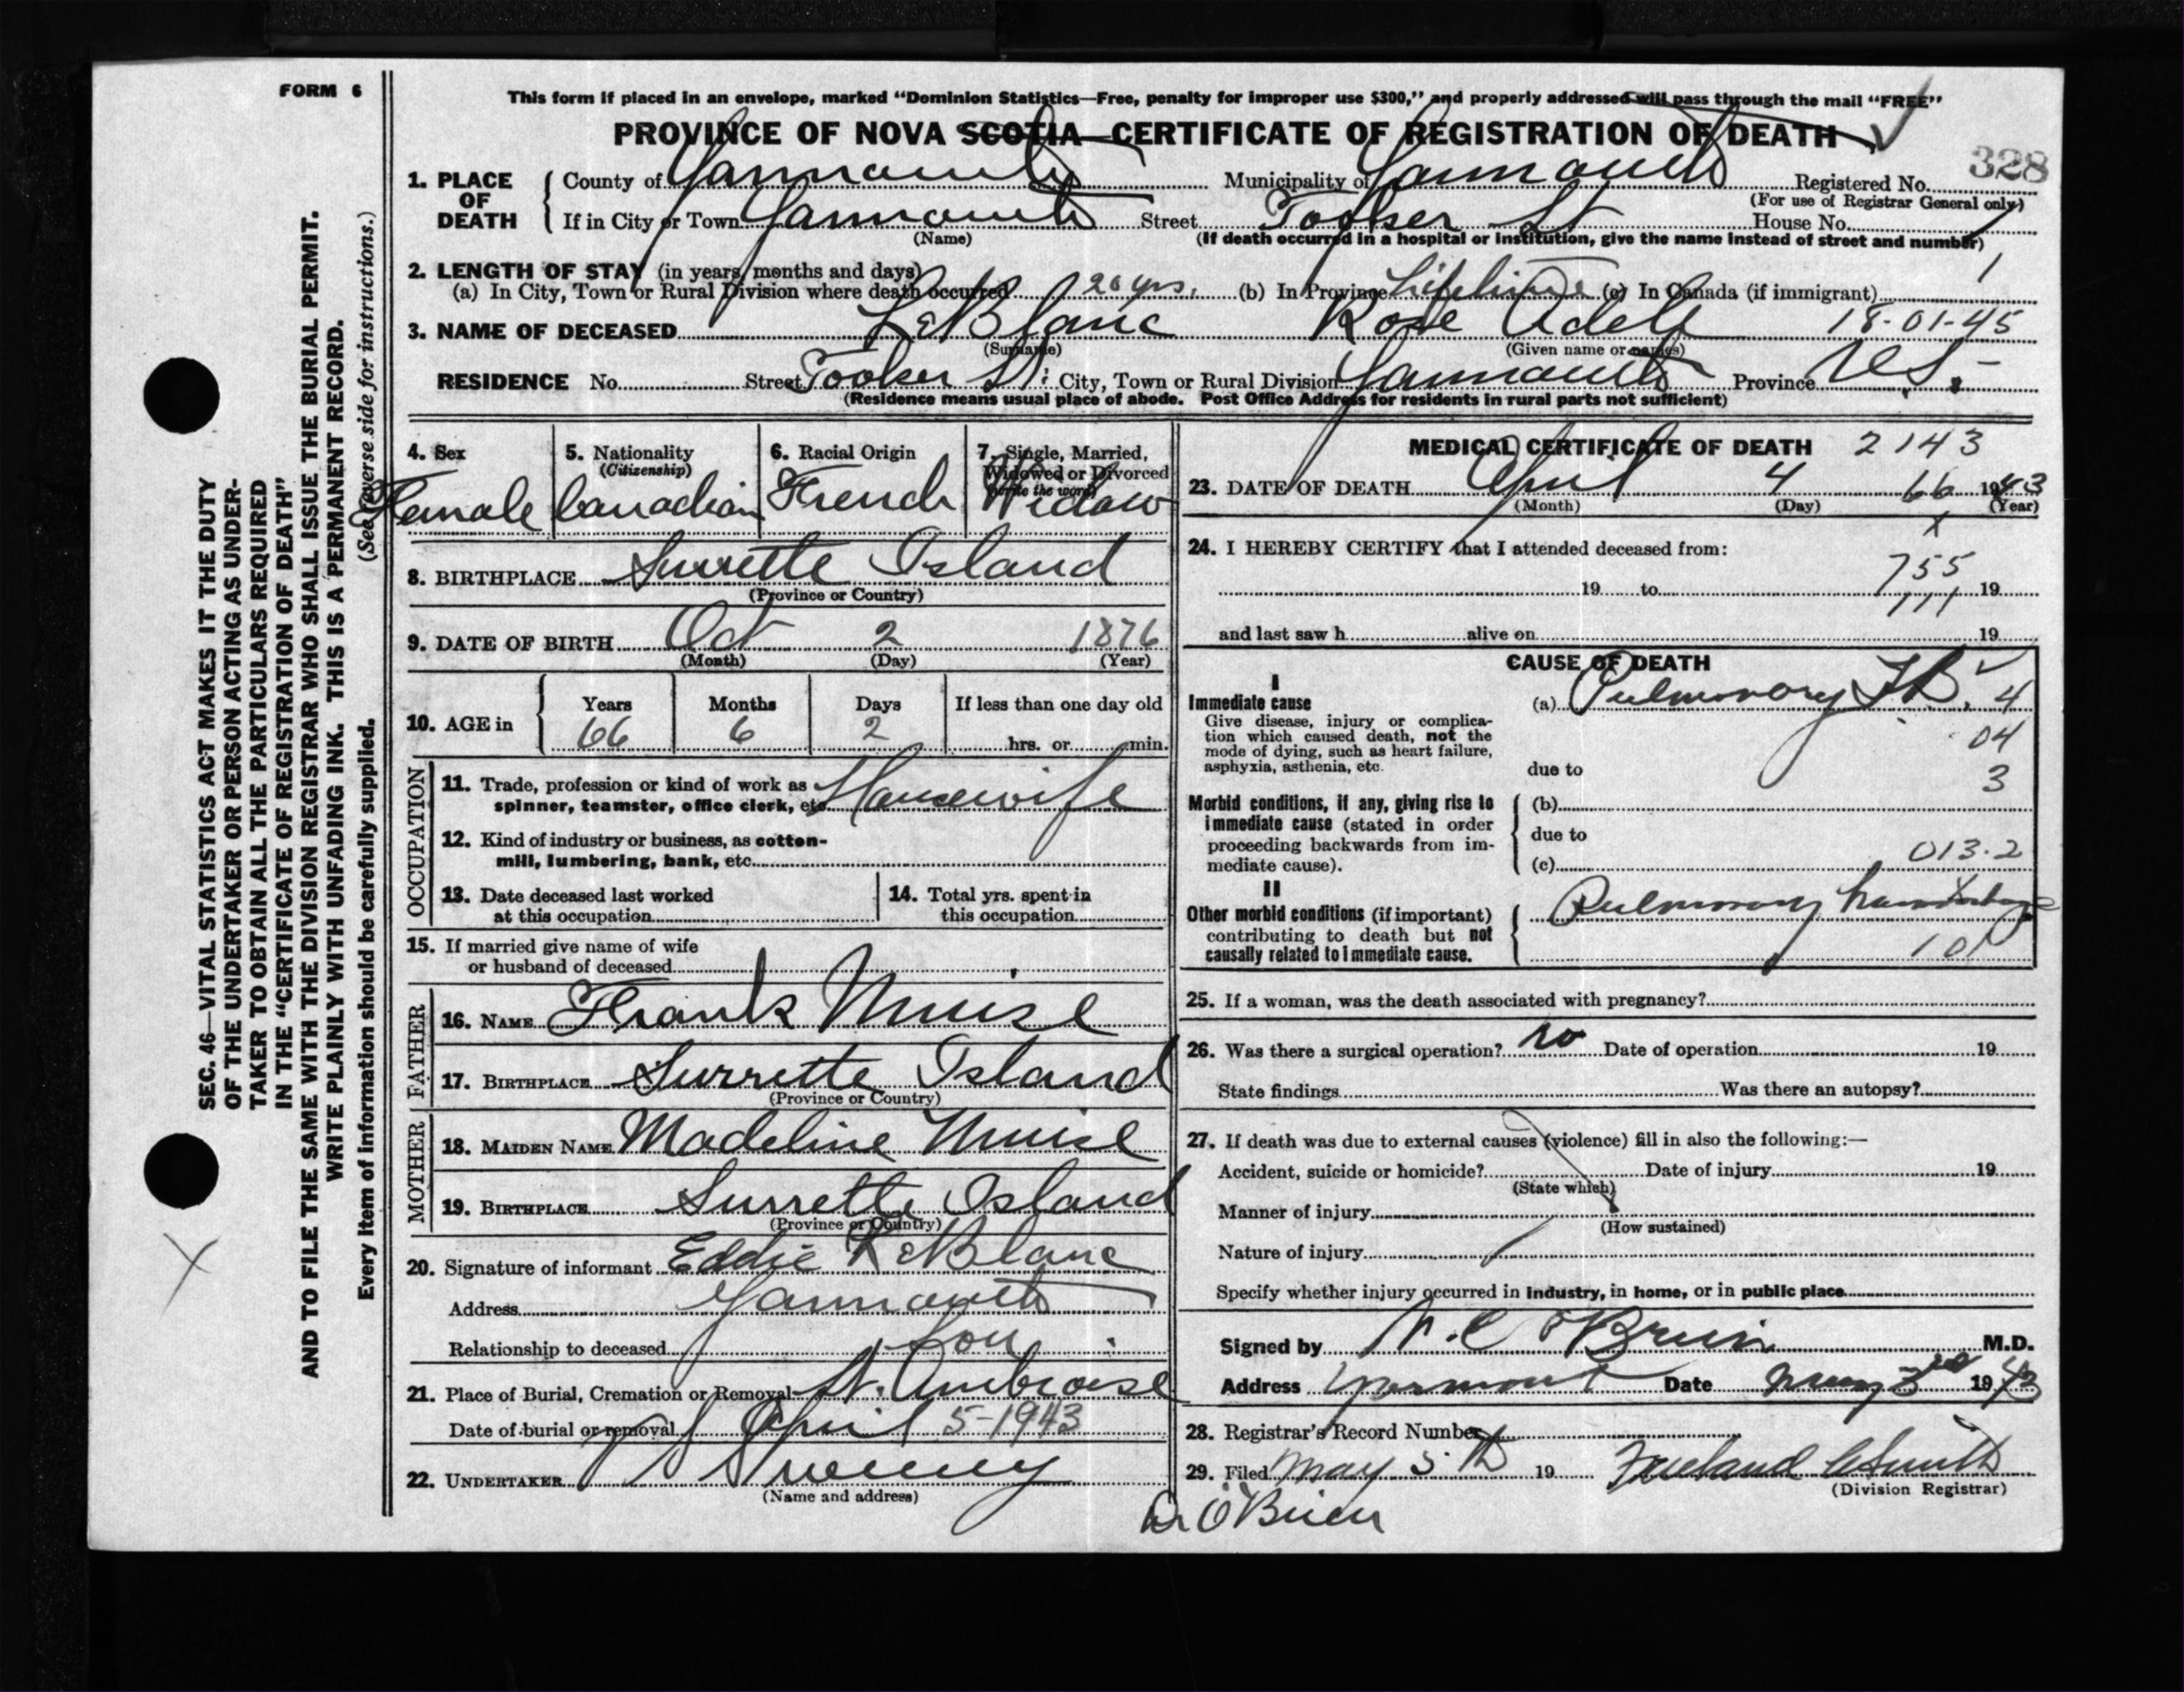 FORM 6
This form if placed in an envelope, marked "Dominion Statistics—Free, penalty for improper use $300," and properly addressed will pass through the mail "FREE"
PROVINCE OF NOVA SCOTIA—CERTIFICATE OF REGISTRATION OF DEATH
328
1. PLACE OF DEATH
County of Yarmouth Municipality of Yarmouth Registered No.
(For use of Registrar General only)
If in City or Town Yarmouth Street Tooker St House No.
(Name) (If death occurred in a hospital or institution, give the name instead of street and number)
2. LENGTH OF STAY (in years, months and days)
(a) In City, Town or Rural Division where death occurred 20 yrs. (b) In Province Lifetime (c) In Canada (if immigrant)
3. NAME OF DECEASED LeBlanc Rose Adele 18-01-45
(Surname) (Given name or names)
RESIDENCE No. Street Tooker St. City, Town or Rural Division Yarmouth Province N.S.
(Residence means usual place of abode. Post Office Address for residents in rural parts not sufficient)
4. Sex
Female
5. Nationality
(Citizenship)
Canadian
6. Racial Origin
French
7. Single, Married,
Widowed or Divorced
(write the word)
Widow
8. BIRTHPLACE Surrette Island
(Province or Country)
9. DATE OF BIRTH Oct 2 1876
(Month) (Day) (Year)
10. AGE in
Years Months Days If less than one day old
66 6 2 hrs. or min.
OCCUPATION
11. Trade, profession or kind of work as
spinner, teamster, office clerk, etc. Housewife
12. Kind of industry or business, as cotton-
mill, lumbering, bank, etc.
13. Date deceased last worked
at this occupation
14. Total yrs. spent in
this occupation
15. If married give name of wife
or husband of deceased
FATHER
16. NAME Frank Muise
17. BIRTHPLACE Surrette Island
(Province or Country)
MOTHER
18. MAIDEN NAME Madeline Muise
19. BIRTHPLACE Surrette Island
(Province or Country)
20. Signature of informant Eddie LeBlanc
Address Yarmouth
Relationship to deceased Son
21. Place of Burial, Cremation or Removal St. Ambroise
Date of burial or removal April 5-1943
22. UNDERTAKER Sweeny
(Name and address)
MEDICAL CERTIFICATE OF DEATH 2143
23. DATE OF DEATH April 4 66 1943
(Month) (Day) (Year)
x
24. I HEREBY CERTIFY that I attended deceased from:
755
19 to 19
111
and last saw h alive on 19
CAUSE OF DEATH
I
Immediate cause
Give disease, injury or complica-
tion which caused death, not the
mode of dying, such as heart failure,
asphyxia, asthenia, etc.
(a) Pulmonary TB. 4
04
due to
3
Morbid conditions, if any, giving rise to
immediate cause (stated in order
proceeding backwards from im-
mediate cause).
(b)
due to
(c) 013.2
II
Other morbid conditions (if important)
contributing to death but not
causally related to immediate cause.
Pulmonary hemorrhage
25. If a woman, was the death associated with pregnancy?
26. Was there a surgical operation? no Date of operation 19
State findings Was there an autopsy?
27. If death was due to external causes (violence) fill in also the following:—
Accident, suicide or homicide? Date of injury 19
(State which)
Manner of injury
(How sustained)
Nature of injury
Specify whether injury occurred in industry, in home, or in public place
Signed by O'Brien M.D.
Address Yarmouth Date May 3rd 1943
28. Registrar's Record Number
29. Filed May 5th 19 Freeland C Smith
(Division Registrar)
Dr O'Brien
SEC. 46—VITAL STATISTICS ACT MAKES IT THE DUTY
OF THE UNDERTAKER OR PERSON ACTING AS UNDER-
TAKER TO OBTAIN ALL THE PARTICULARS REQUIRED
IN THE "CERTIFICATE OF REGISTRATION OF DEATH"
AND TO FILE THE SAME WITH THE DIVISION REGISTRAR WHO SHALL ISSUE THE BURIAL PERMIT.
WRITE PLAINLY WITH UNFADING INK. THIS IS A PERMANENT RECORD.
Every item of information should be carefully supplied. (See reverse side for instructions.)
X